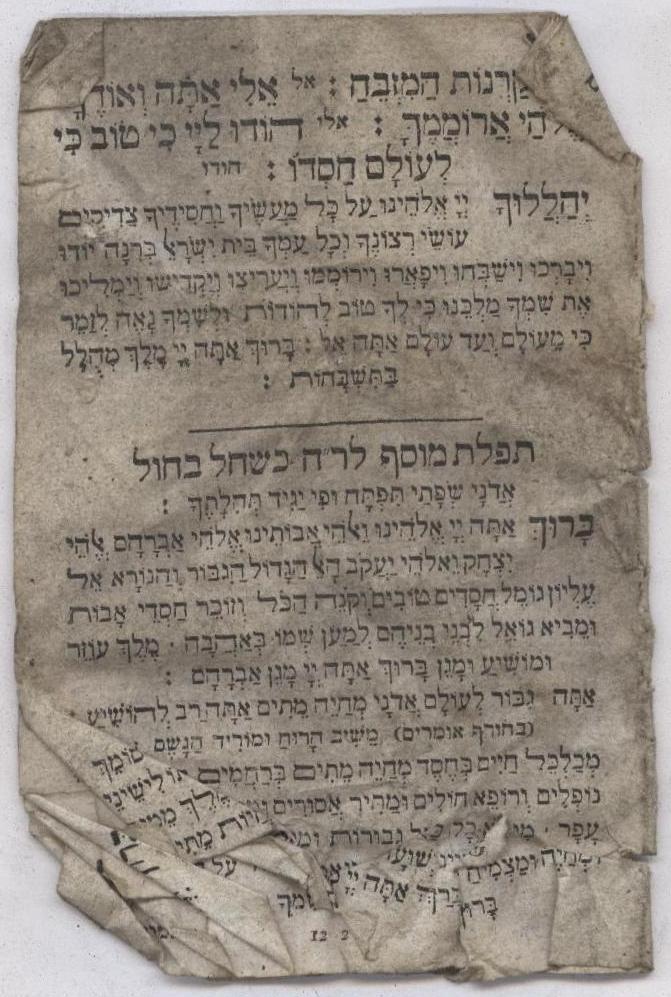 קַרְנוֹת הַמִּזְבֵּחַ : אל אֵלִי אַתָּה וְאוֹדֶךָּ
אֲרוֹמְמֶךָּ : אלי הוֹדוּ לַיְיָ כִּי טוֹב כִּי
לְעוֹלָם חַסְדּוֹ : הודו
יְהַלְלוּךָ יְיָ אֱלֹהֵינוּ עַל כָּל מַעֲשֶׂיךָ וַחֲסִידֶיךָ צַדִּיקִים
עוֹשֵׂי רְצוֹנֶךָ וְכָל עַמְּךָ בֵּית יִשְׂרָאֵל בְּרִנָּה יוֹדוּ
וִיבָרְכוּ וִישַׁבְּחוּ וִיפָאֲרוּ וִירוֹמְמוּ וְיַעֲרִיצוּ וְיַקְדִּישׁוּ וְיַמְלִיכוּ
אֶת שִׁמְךָ מַלְכֵּנוּ כִּי לְךָ טוֹב לְהוֹדוֹת וּלְשִׁמְךָ נָאֶה לְזַמֵּר
כִּי מֵעוֹלָם וְעַד עוֹלָם אַתָּה אֵל : בָּרוּךְ אַתָּה יְיָ מֶלֶךְ מְהֻלָּל
בַּתִּשְׁבָּחוֹת :
תפלת מוסף לר״ה כשחל בחול
אֲדֹנָי שְׂפָתַי תִּפְתָּח וּפִי יַגִּיד תְּהִלָּתֶךָ :
בָּרוּךְ אַתָּה יְיָ אֱלֹהֵינוּ וֵאלֹהֵי אֲבוֹתֵינוּ אֱלֹהֵי אַבְרָהָם אֱלֹהֵי
יִצְחָק וֵאלֹהֵי יַעֲקֹב הָאֵל הַגָּדוֹל הַגִּבּוֹר וְהַנּוֹרָא אֵל
עֶלְיוֹן גּוֹמֵל חֲסָדִים טוֹבִים וְקֹנֵה הַכֹּל וְזוֹכֵר חַסְדֵי אָבוֹת
וּמֵבִיא גוֹאֵל לִבְנֵי בְנֵיהֶם לְמַעַן שְׁמוֹ בְּאַהֲבָה · מֶלֶךְ עוֹזֵר
וּמוֹשִׁיעַ וּמָגֵן בָּרוּךְ אַתָּה יְיָ מָגֵן אַבְרָהָם :
אַתָּה גִּבּוֹר לְעוֹלָם אֲדֹנָי מְחַיֵּה מֵתִים אַתָּה רַב לְהוֹשִׁיעַ
(בחורף אומרים) מַשִּׁיב הָרוּחַ וּמוֹרִיד הַגֶּשֶׁם
מְכַלְכֵּל חַיִּים בְּחֶסֶד מְחַיֵּה מֵתִים בְּרַחֲמִים סוֹמֵךְ
נוֹפְלִים וְרוֹפֵא חוֹלִים וּמַתִּיר אֲסוּרִים לִישֵׁינֵי
עָפָר · גְּבוּרוֹת מֶלֶךְ
וּמַצְמִיחַ מֵתִי
בָּרוּךְ אַתָּה יְיָ
12 2